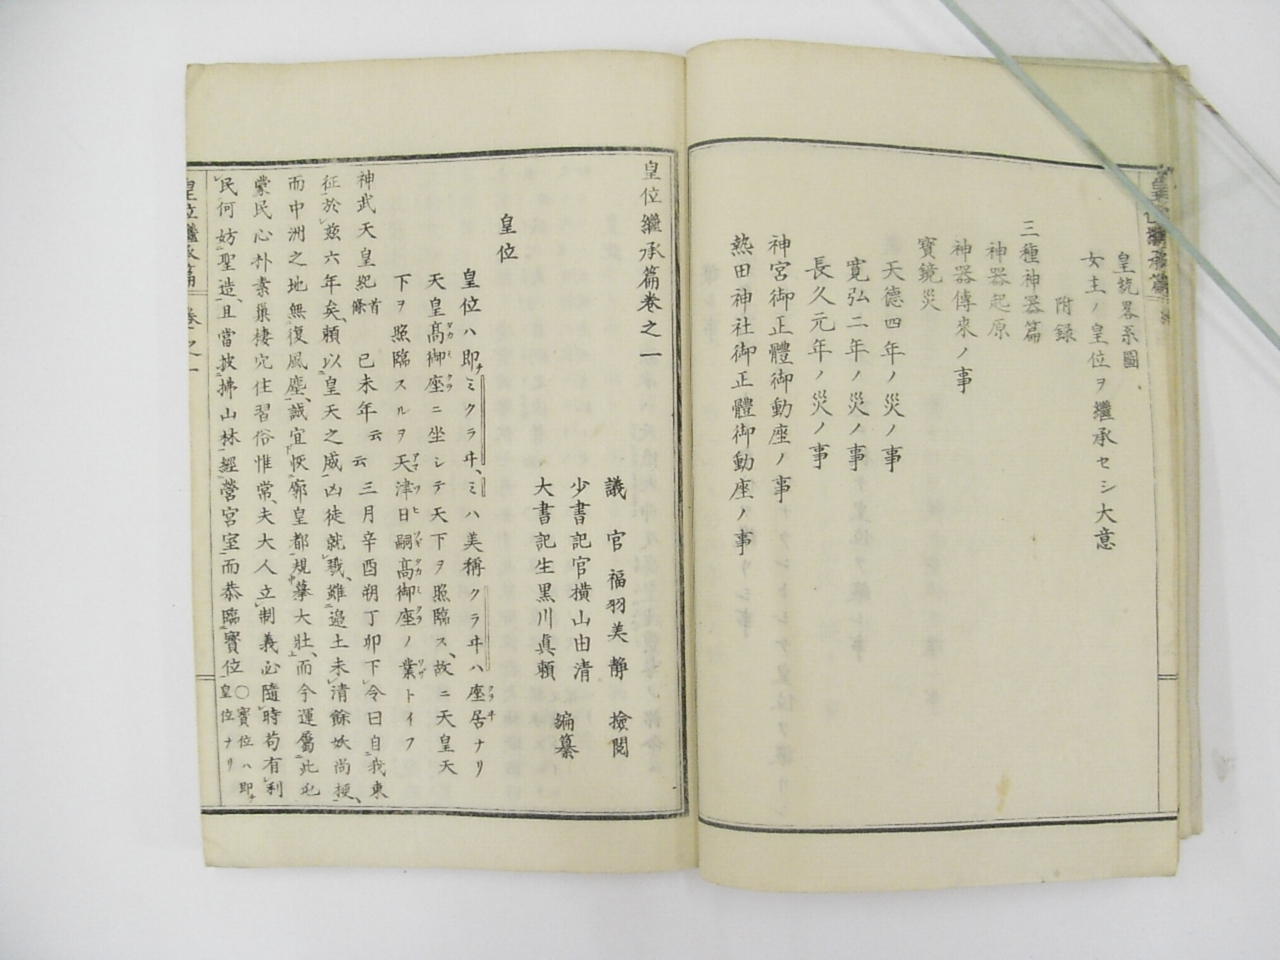 皇統畧系圖
女主ノ皇位ヲ繼承セシ大意
附録
三種神器篇
神器起原
神器傳來ノ事
寶鏡災
天德四年ノ災ノ事
寛弘二年ノ災ノ事
長久元年ノ災ノ事
神宮御正體御動座ノ事
熱田神社御正體御動座ノ事
皇位繼承篇卷之一
議官福羽美靜 撿閲
少書記官橫山由清
大書記生黒川眞頼 編纂
皇位
皇位ハ即チミクラヰ、ミハ美稱クラヰハ座居ナリ
天皇髙御座ニ坐シテ天下ヲ照臨ス、故ニ天皇天
下ヲ照臨スルヲ天津日嗣髙御座ノ業トイフ
神武天皇紀首條 己未年云云三月辛酉朔丁卯下令曰自我東
征於玆六年矣、頼以皇天之威凶徒就戮、雖邉土未清餘妖尚梗、
而中洲之地無復風塵、誠宜恢廓皇都規摹大壯、而今運屬此屯
蒙民心朴素巢棲穴住習俗惟常、夫大人立制義必隨時苟有利
民何妨聖造、且當披拂山林經營宮室而恭臨寳位 ○寳位ハ即皇位ナリ
皇位繼承篇 卷之一